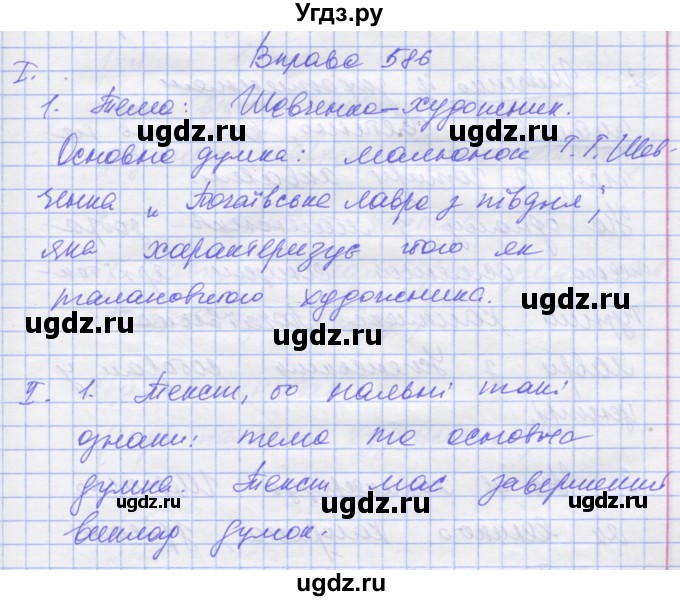 Угдз.ру
Вправа 586
I.
1. Тема: Шевченко-художник.
Основна думка: малюнок Т.Г. Шев-
ченка „Почаївська лавра з півдня",
яка характеризує його як
талановитого художника.
II. 1. Текст, бо наявні такі
ознаки: тема та основна
думка. Текст має завершений
виклад думок.
ugdz.ru
ugdz.ru
ugdz.ru
ugdz.ru
ugdz.ru
ugdz.ru
ugdz.ru
ugdz.ru
ugdz.ru
ugdz.ru
ugdz.ru